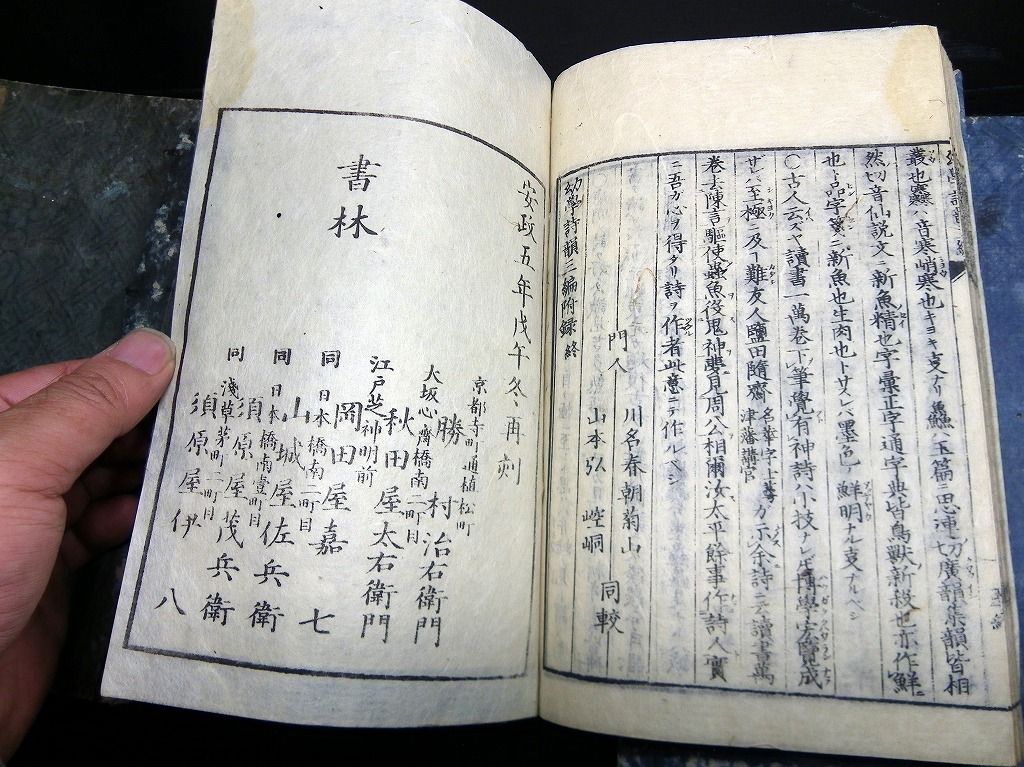 叢也寒ハ音寒峭寒也キヨキ支ナリ鱻ハ玉篇ニ思連切廣韻集韻皆相
然切音仙説文ニ新魚精也字彙正字通字典皆鳥獸新殺也亦作鮮ニ
也ト品字箋ニ新魚也生肉也トサレバ墨色ノ鮮明ナル支ナルベシ
○古人云ズヤ讀書一萬卷下レ筆覺有神詩ハ小技ナレ𪜈博學宏覽成
ザレバ至極ニ及ー難友人鹽田隨齋名華字士萼津藩講官ガ示余詩ニ云讀書萬
卷去陳言驅使蟲魚役鬼神夢見周公相爾汝太平餘事作詩人實
ニ吾ガ心ヲ得タリ詩ヲ作者此意ニテ作ルベシ
門人 川名春朝菊山
山本弘 崆峒 同較
幼學詩韻三編附録終
安政五年戊午冬再刻
書林
京都寺町通植松町
勝村治右衛門
大坂心齋橋南二町目
秋田屋太右衛門
江戸芝神明前
岡田屋嘉七
同日本橋南二町目
山城屋佐兵衛
同日本橋南壹町目
須原屋茂兵衛
同淺草茅町二町目
須原屋伊八